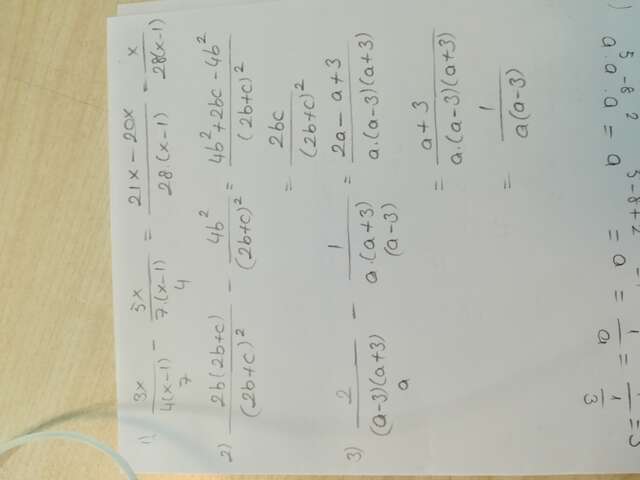 1) 3x/4(x-1) - 5x/7.(x-1) = 21x - 20x/28.(x-1) = x/28(x-1)
7 4
2) 2b(2b+c)/(2b+c)² - 4b²/(2b+c)² = 4b²+2bc-4b²/(2b+c)²
= 2bc/(2b+c)²
3) 2/(a-3)(a+3) - 1/a.(a+3) = 2a-a+3/a.(a-3)(a+3)
a (a-3)
= a+3/a.(a-3)(a+3)
= 1/a(a-3)
) a⁵.a⁻⁸.a² = a⁵⁻⁸⁺² = a⁻¹ = 1/a = 1/
1/3